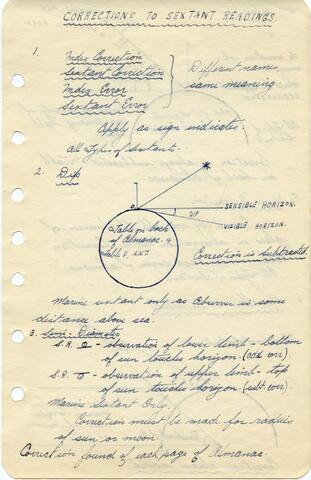 CORRECTIONS TO SEXTANT READINGS.
1. Index Correction
Sextant Correction
Index Error
Sextant Error
Different names,
same meaning
Apply as sign indicates.
All Types of Sextants.
2. Dip
SENSIBLE HORIZON.
DIP
VISIBLE HORIZON.
Table on back
of Almanac &
table D, A.N.T.
Correction is Subtracted.
Marine sextant only as Observer is some
distance above sea.
3. Semi-Diameter
S.R. - observation of lower limb - bottom
of sun touches horizon. (add corr).
S.R. - observation of upper limb - top
of sun touches horizon. (subt. corr).
Marine Sextant Only.
Correction must be made for radius
of sun or moon.
Correction found of each page of Almanac.